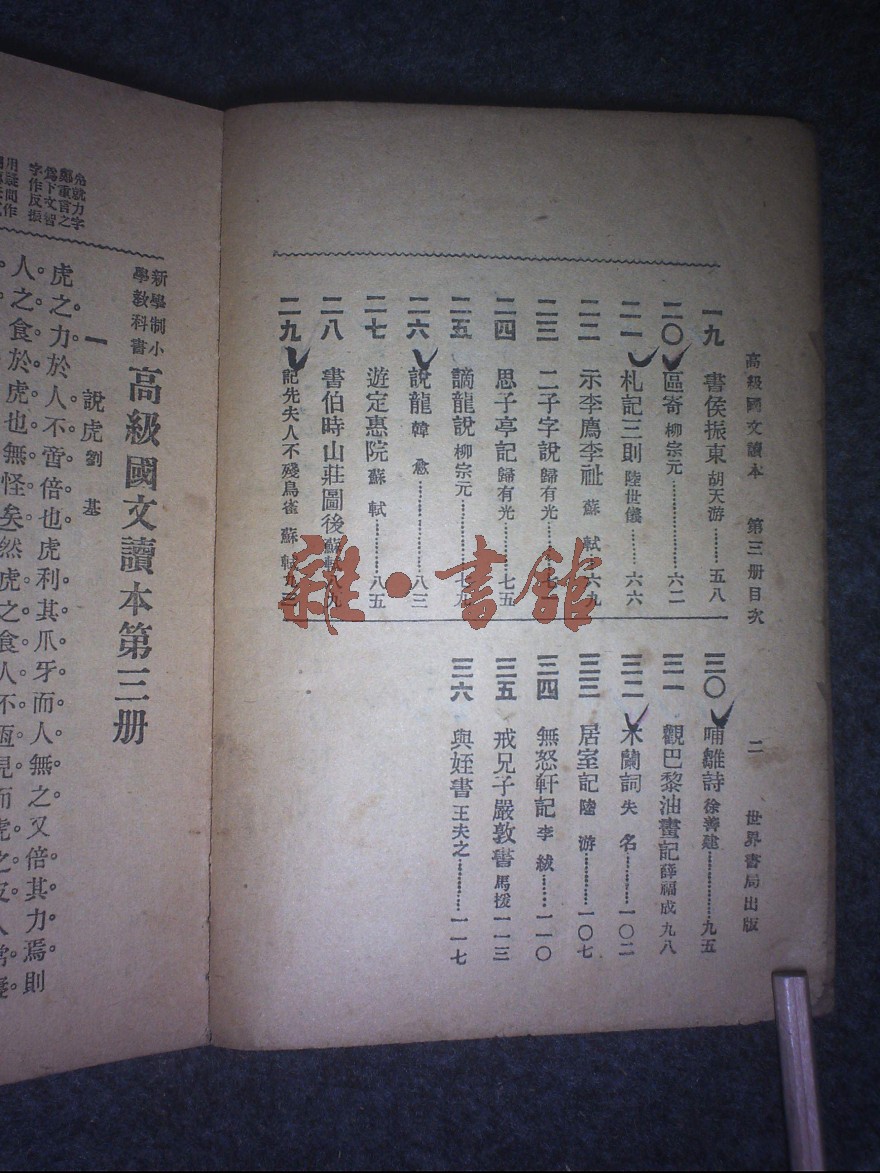 高級國文讀本　第三册目次　二　世界書局出版
一九　書侯振東　胡天游……五八
二〇　區寄　柳宗元……六二
二一　札記三則　陸世儀……六六
二二　示李廌李祉　蘇軾…六九
二三　二子字說　歸有光……七
二四　思子亭記　歸有光……七五
二五　謫龍說　柳宗元……七九
二六　說龍　韓愈……八三
二七　遊定惠院　蘇軾……八五
二八　書伯時山莊圖後　蘇軾　八九
二九　記先夫人不殘鳥雀　蘇軾　九三
三〇　哺雛詩　徐善建……九五
三一　觀巴黎油畫記　薛福成　九八
三二　木蘭詞　失名……一〇二
三三　居室記　陸游……一〇七
三四　無怒軒記　李紱……一一〇
三五　戒兄子嚴敦書　馬援　一一三
三六　與姪書　王夫之……一一七
雜·書館
新學制小學教科書　高級國文讀本第三册
一　說虎　劉基
虎之力於人不啻倍也。虎利其爪牙。而人無之。又倍其力焉。則
人之食於虎也。無怪矣。然虎之食人不恆見。而虎之皮人常寢
先就力字
鄭重言之
爲下文智
字作反振